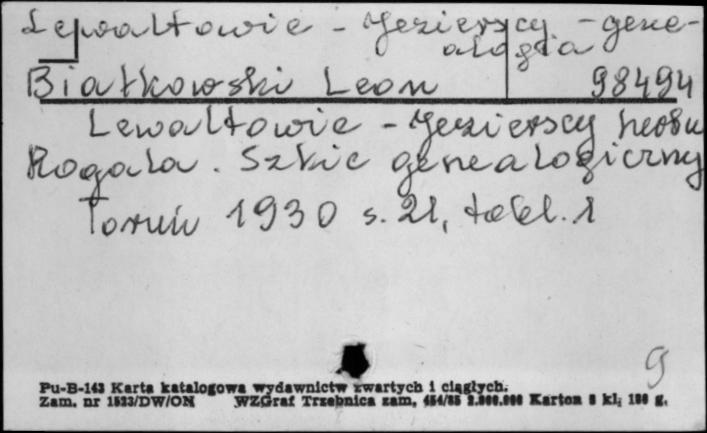 Lewaltowie - Jezierscy - gene-
alogia
Białkowski Leon 98494
Lewaltowie - Jezierscy herbu
Rogala. Szkic genealogiczny
Toruń 1930 s. 21, tabl. 1
9
Pu-B-143 Karta katalogowa wydawnictw zwartych i ciągłych.
Zam. nr 1533/DW/ON WZGraf Trzebnica zam. 454/85 2.000.000 Karton 8 kl; 180 g.